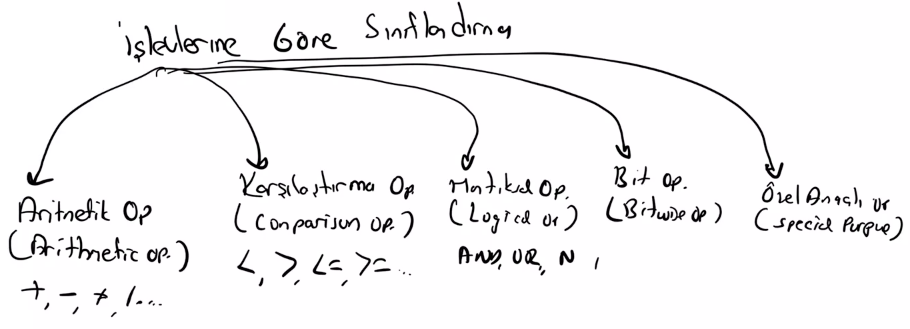 işlevlerine Göre Sınıflandırma
Aritmetik Op
(Arithmetic op.)
+, -, *, /....
Karşılaştırma Op
(Comparison op.)
<, >, <=, >= ...
Mantıksal Op.
(Logical Op)
AND, OR, N ,
Bit Op.
(Bitwise op)
Özel Amaçlı Op
(special Purpose)